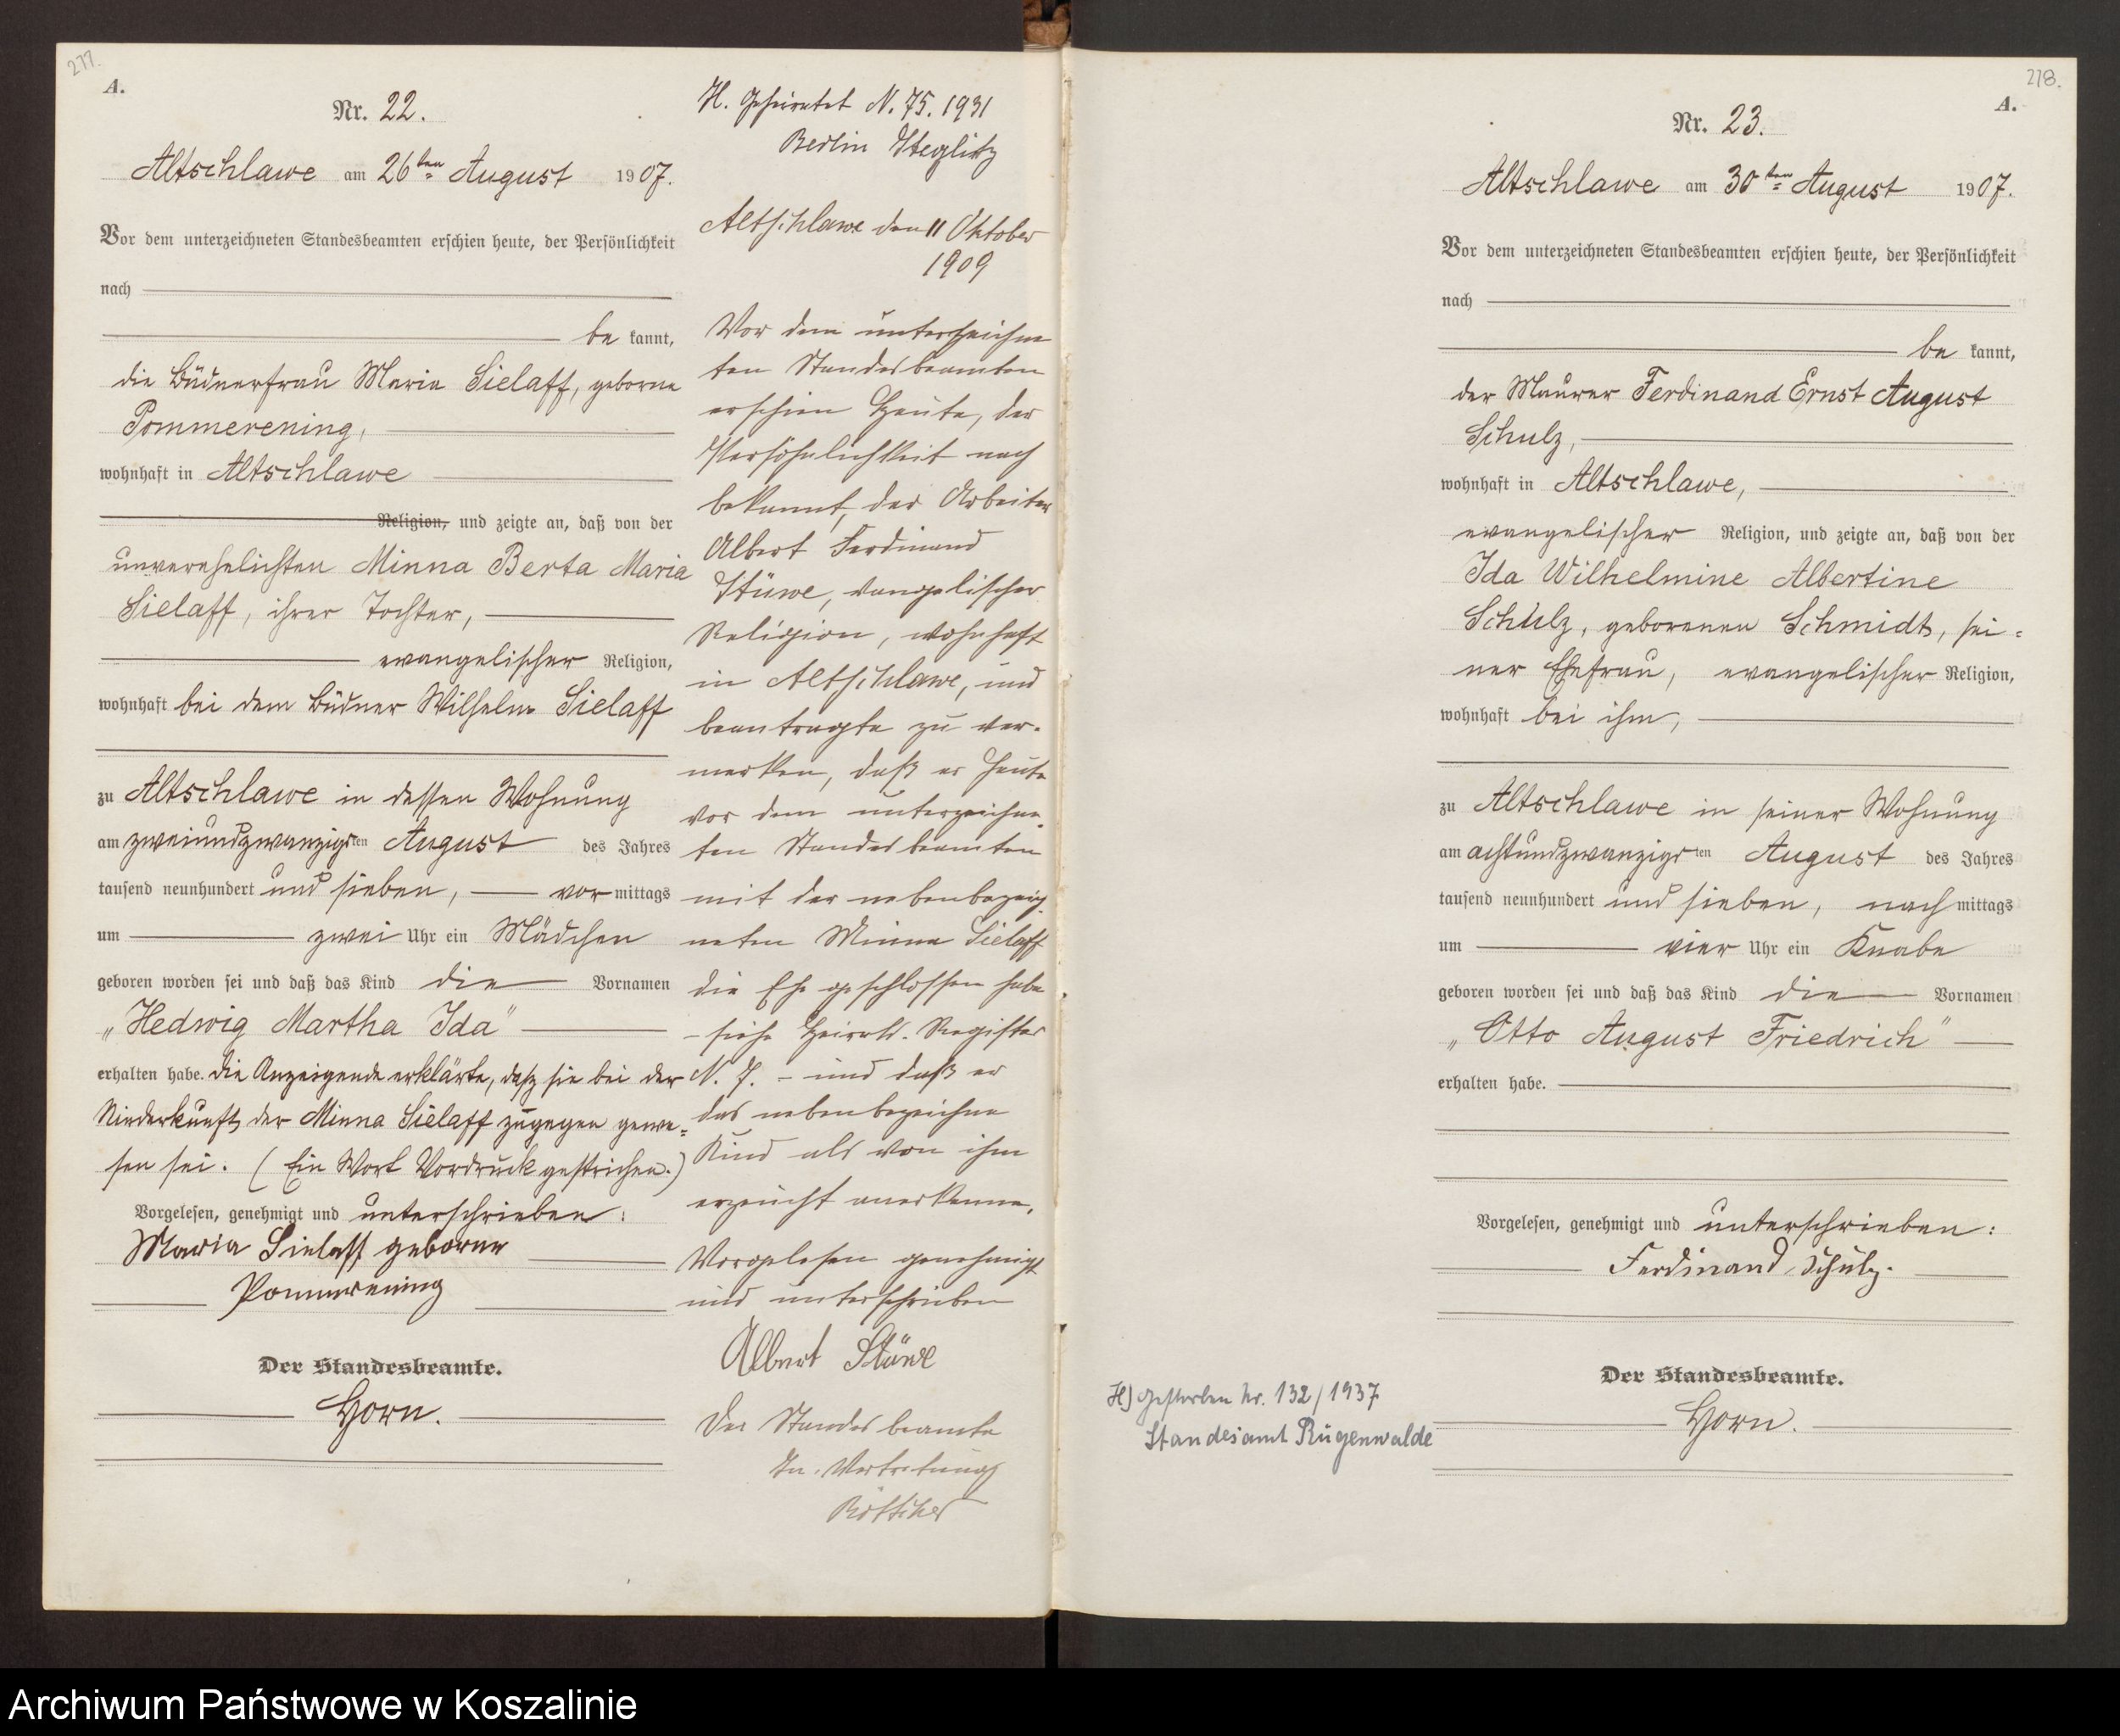 277.
A.
Nr. 22.
Altschlawe am 26ten August 1907.
Vor dem unterzeichneten Standesbeamten erschien heute, der Persönlichkeit
nach
be kannt,
die Büdnerfrau Maria Sielaff, geborne
Pommerening,
wohnhaft in Altschlawe
Religion, und zeigte an, daß von der
unverehelichten Minna Berta Maria
Sielaff, ihrer Tochter,
evangelischer Religion,
wohnhaft bei dem Büdner Wilhelm Sielaff
zu Altschlawe in dessen Wohnung
am zweiundzwanzigsten August des Jahres
tausend neunhundert und sieben, vor mittags
um zwei Uhr ein Mädchen
geboren worden sei und daß das Kind die Vornamen
„Hedwig Martha Ida"
erhalten habe. Die Anzeigende erklärte, daß sie bei der
Niederkunft der Minna Sielaff zugegen gewe=
sen sei. (Ein Wort Vordruck gestrichen.)
Vorgelesen, genehmigt und unterschrieben:
Maria Sielaff geborne
Pommerening
Der Standesbeamte.
Horn.
H. Geheiratet N. 75. 1931
Berlin Steglitz
Altschlawe den 11 Oktober
1909
Vor dem unterzeichne
ten Standesbeamten
erschien heute, der
Persöhnlichkeit nach
bekannt, der Arbeiter
Albert Ferdinand
Stüwe, evangelischer
Religion, wohnhaft
in Altschlawe, und
beantragte zu ver-
merken, daß er heute
vor dem unterzeichne-
ten Standesbeamten
mit der nebenbezeich-
neten Minna Sielaff
die Ehe geschlossen habe
- siehe Heirats-Register
N. 7. - und daß er
das nebenbezeichne
Kind als von ihm
erzeucht anerkenne.
Vorgelesen genehmigt
und unterschrieben
Albert Stüwe
Der Standesbeamte
In Vertretung
Böttcher
218.
A.
Nr. 23.
Altschlawe am 30ten August 1907.
Vor dem unterzeichneten Standesbeamten erschien heute, der Persönlichkeit
nach
be kannt,
der Maurer Ferdinand Ernst August
Schulz,
wohnhaft in Altschlawe,
evangelischer Religion, und zeigte an, daß von der
Ida Wilhelmine Albertine
Schulz, geborenen Schmidt, sei=
ner Ehefrau, evangelischer Religion,
wohnhaft bei ihm,
zu Altschlawe in seiner Wohnung
am achtundzwanzigsten August des Jahres
tausend neunhundert und sieben, nach mittags
um vier Uhr ein Knabe
geboren worden sei und daß das Kind die Vornamen
„Otto August Friedrich"
erhalten habe.
Vorgelesen, genehmigt und unterschrieben:
Ferdinand Schulz.
Der Standesbeamte.
Horn.
H) Gestorben Nr. 132/1937
Standesamt Rügenwalde
Archiwum Państwowe w Koszalinie